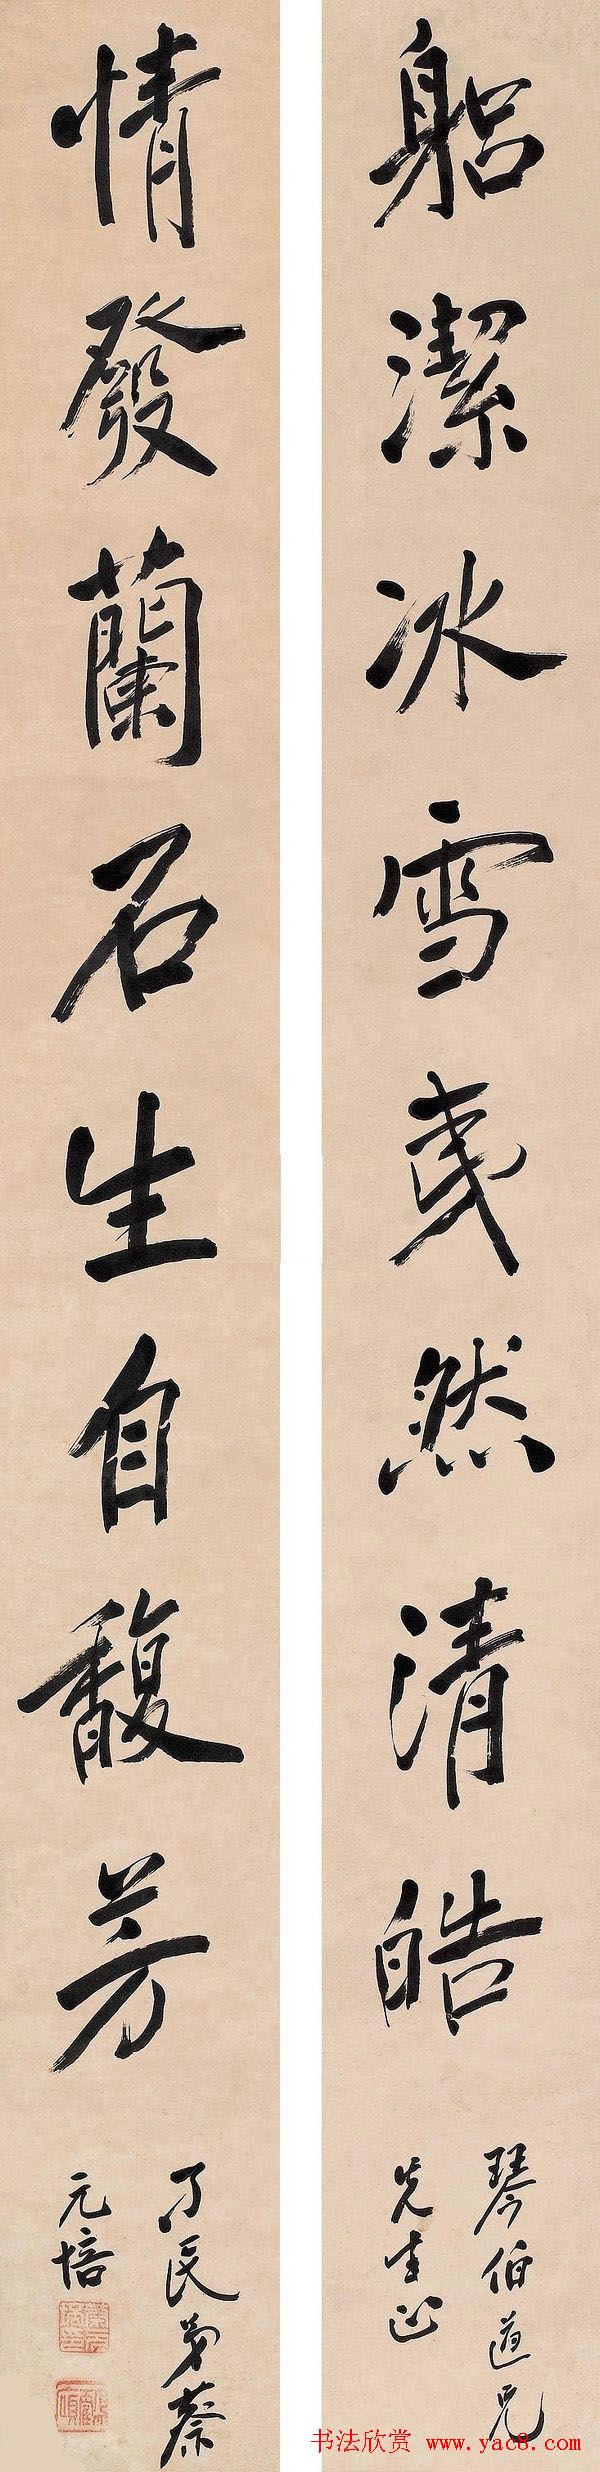 躳潔冰雪夷然清皓
琴伯道兄
先生正
情發蘭石生自馥芳
孑民弟蔡
元培
书法欣赏 www.yac8.com